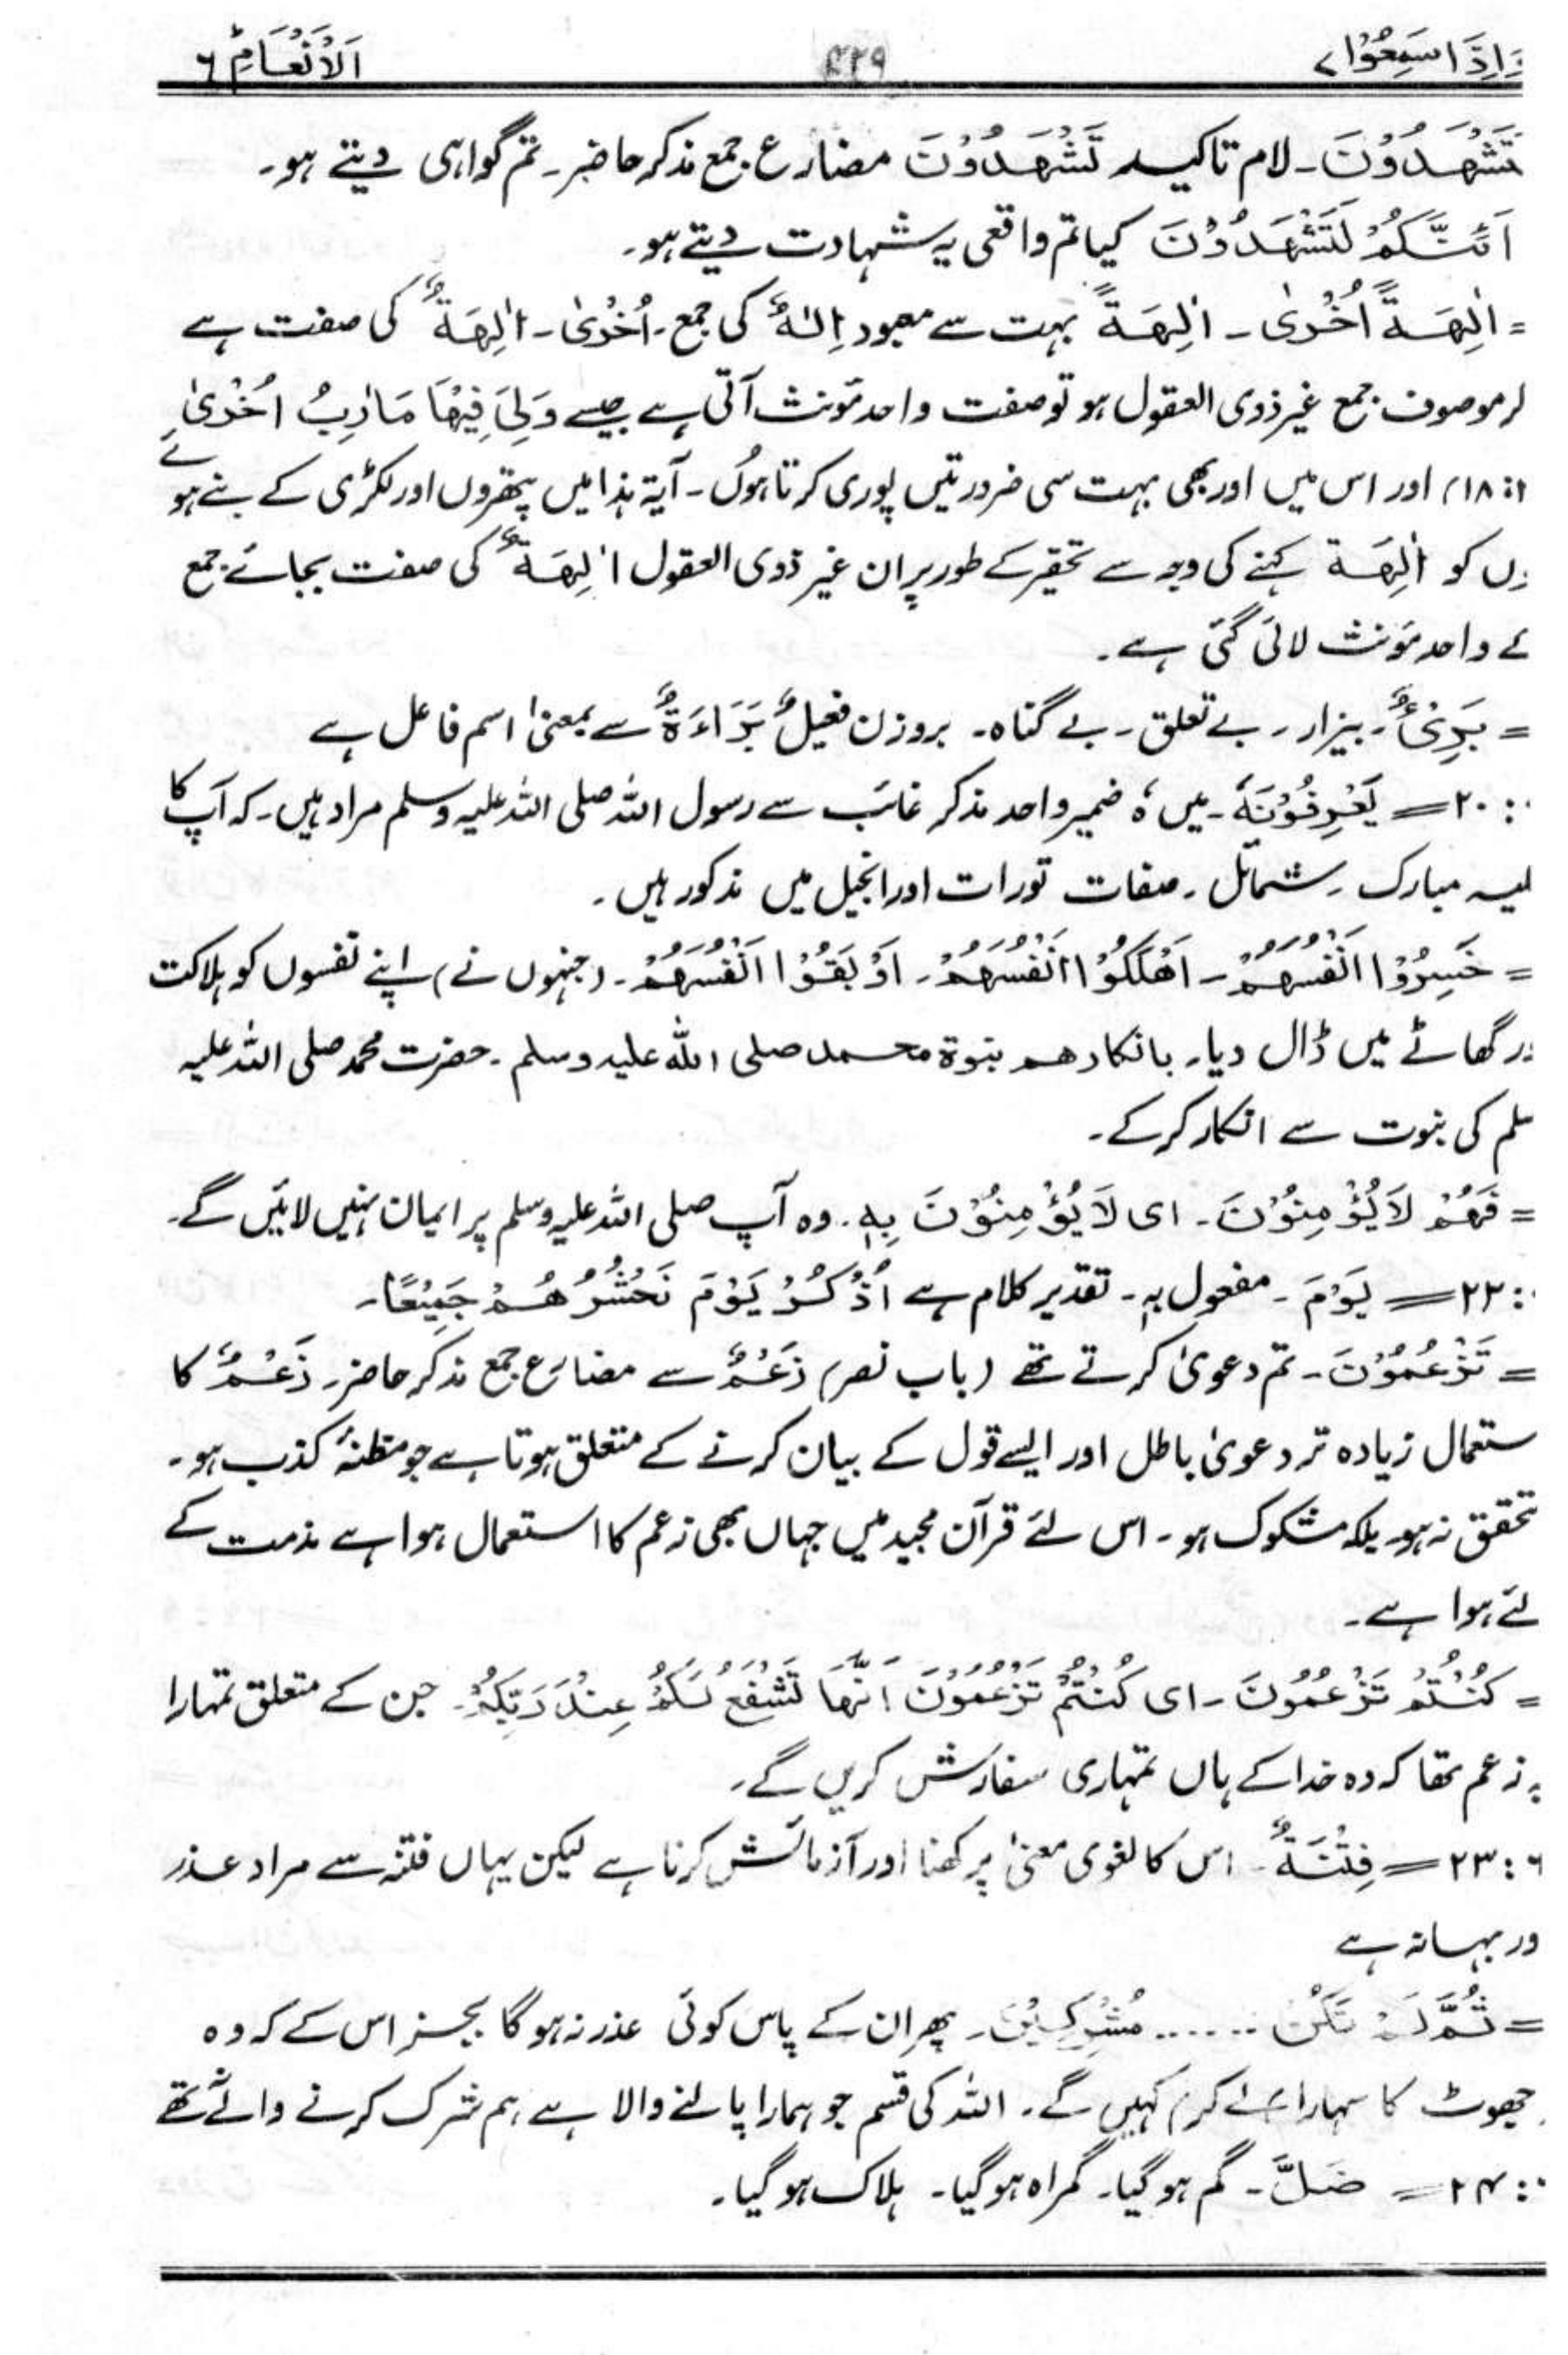 وَاِذَا سَمِعُوْا ۷ ۴۲۹ اَلْاَنْعَامِ ۶
تَشْهَدُوْنَ۔ لام تاکید تَشْهَدُوْنَ مضارع جمع مذکر حاضر۔ تم گواہی دیتے ہو۔
اَئِنَّكُمْ لَتَشْهَدُوْنَ کیا تم واقعی یہ شہادت دیتے ہو۔
= اٰلِهَةً اُخْرٰى۔ اٰلِهَةً بہت سے معبود اِلٰهٌ کی جمع۔ اُخْرٰى۔ اٰلِهَةٌ کی صفت ہے
ر موصوف جمع غیر ذوی العقول ہو تو صفت واحد مؤنث آتی ہے جیسے وَلِيَ فِيْهَا مَاٰرِبُ اُخْرٰى
۱۸:۱) اور اس میں اور بھی بہت سی ضرورتیں پوری کرتا ہوں۔ آیۃ ہذا میں پتھروں اور لکڑی کے بنے ہوئے
وں کو اٰلِهَة کہنے کی وجہ سے تحقیر کے طور پر ان غیر ذوی العقول اٰلِهَةٌ کی صفت بجائے جمع
ے واحد مؤنث لائی گئی ہے۔
= بَرِيْٓءٌ۔ بیزار۔ بے تعلق۔ بے گناہ۔ بروزن فعیلٌ بَرَاءَةٌ سے بمعنیٰ اسم فاعل ہے
:۲۰ = يَعْرِفُوْنَهٗ۔ میں ہٗ ضمیر واحد مذکر غائب سے رسول اللہ صلی اللہ علیہ وسلم مراد ہیں۔ کہ آپ کا
لیہ مبارک۔ شمائل۔ صفات تورات اور انجیل میں مذکور ہیں۔
= خَسِرُوْا اَنْفُسَهُمْ۔ اَهْلَكُوْا اَنْفُسَهُمْ۔ اَوْبَقُوْا اَنْفُسَهُمْ۔ (جنہوں نے) اپنے نفسوں کو ہلاکت
ور گھاٹے میں ڈال دیا۔ بانکارهم بنبوة محمد صلى الله عليه وسلم۔ حضرت محمد صلی اللہ علیہ
سلم کی نبوت سے انکار کر کے۔
= فَهُمْ لَا يُؤْمِنُوْنَ۔ ای لَا يُؤْمِنُوْنَ بِهٖ۔ وہ آپ صلی اللہ علیہ وسلم پر ایمان نہیں لائیں گے۔
:۲۲ = يَوْمَ۔ مفعول بہٖ۔ تقدیر کلام ہے اُذْكُرْ يَوْمَ نَحْشُرُهُمْ جَمِيْعًا۔
= تَزْعُمُوْنَ۔ تم دعویٰ کرتے تھے (باب نصر) زَعْمٌ سے مضارع جمع مذکر حاضر۔ زَعْمٌ کا
ستعمال زیادہ تر دعویٰ باطل اور ایسے قول کے بیان کرنے کے متعلق ہوتا ہے جو مظنۂ کذب ہو۔
تحقق نہ ہو۔ بلکہ مشکوک ہو۔ اس لئے قرآن مجید میں جہاں بھی زعم کا استعمال ہوا ہے مذمت کے
لئے ہوا ہے۔
= كُنْتُمْ تَزْعُمُوْنَ۔ ای كُنْتُمْ تَزْعُمُوْنَ اَنَّهَا تَشْفَعُ لَكُمْ عِنْدَ رَبِّكُمْ۔ جن کے متعلق تمہارا
یہ زعم تھا کہ وہ خدا کے ہاں تمہاری سفارش کریں گے۔
۶:۲۳ = فِتْنَةٌ۔ اس کا لغوی معنیٰ پرکھنا اور آزمائش کرنا ہے لیکن یہاں فتنہ سے مراد عذر
ور بہانہ ہے
= ثُمَّ لَمْ تَكُنْ ...... مُشْرِكِيْنَ۔ پھر ان کے پاس کوئی عذر نہ ہوگا بجز اس کے کہ وہ
جھوٹ کا سہارا لے کر) کہیں گے۔ اللہ کی قسم جو ہمارا پالنے والا ہے ہم شرک کرنے والے نہ تھے
:۲۴ = ضَلَّ۔ گم ہوگیا۔ گمراہ ہوگیا۔ ہلاک ہوگیا۔